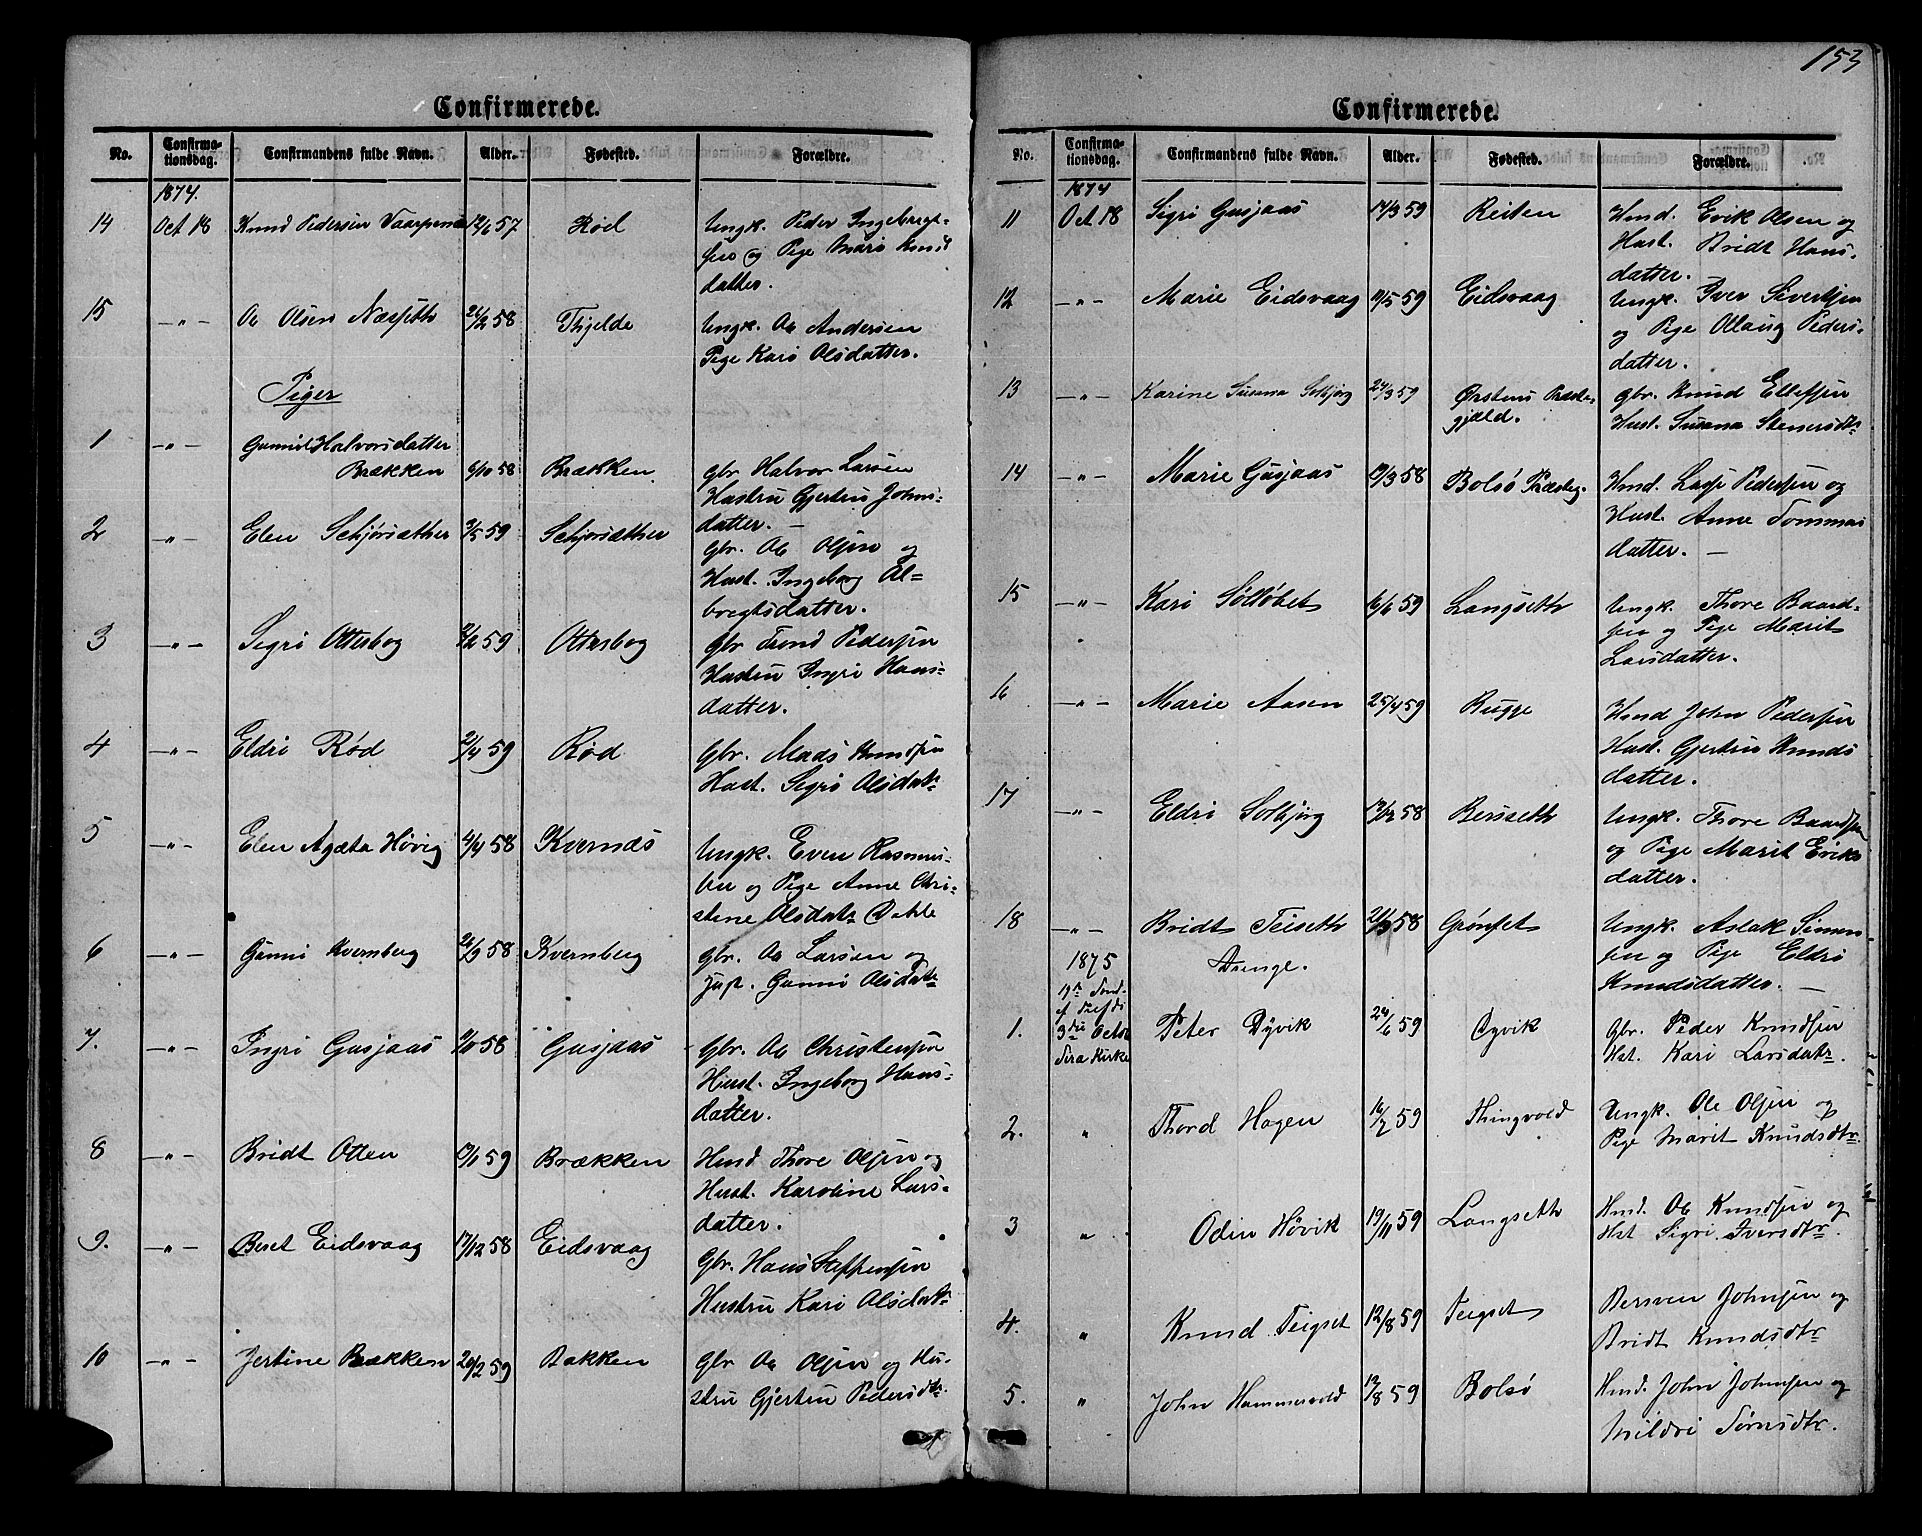 Confirmerede.
No. Confirma-tionsdag. Confirmandens fulde Navn. Alder. Fødested. Forældre.
1874.
14 Oct 18 Knud Pedersen 12/6 57 Rød Ungk. Peder Ingebregt-
sen og Pige Mari Knuds
datter.
15 -"- Ole Olsen Næsseth 24/2 58 Thjelde Ungk. Ole Andersen
Pige Kari Olsdatter.
Piger
1 -"- Gunnil Halvorsdatter
Brækken 6/10 58 Brækken gbr Halvor Larsen
Hustru Gjertru Johns-
datter. —
2 -"- Elen Schjørsæther 3/5 59 Schjørsæther Gbr. Ole Olsen og
Hust. Ingeborg El-
bregtsdatter.
3 -"- Sigri Ottersbog 2/2 59 Ottersbog Gbr Trond Pedersen
Hustru Ingri Hans-
datter.
4 -"- Eldri Rød 2/4 59 Rød Gbr. Mads Knudsen
Hust. Sigri Olsdatr
5 -"- Elen Agata Høvig 4/4 58 Kvernæs Ungk. Even Rasmus-
sen og Pige Anne Chri-
stine Olsdatr Dahle
6 -"- Gunni Kvernberg 26/9 58 Kvernberg gbr. Ole Larsen og
Gunni Olsdatr
7. -"- Ingri Gusjaas 58 Gusjaas Gbr. Ole Christensen
Hust. Ingeborg Hans-
datter.
8 -"- Bridt Otten 59 Brækken Hmd Thore Olsen og
Hust. Karoline Lars-
datter.
9. -"- Beret Eidsvaag 17/12 58 Eidsvaag Gbr. Hans Steffensen
Hustru Kari Olsdatr
10 -"- Jertine Brækken 20/2 59 Bakken Gbr Ole Olsen og Hu-
stru Gjertru Pedersdtr.
153
Confirmerede.
No. Confirma-tionsdag. Confirmandens fulde Navn. Alder. Fødested. Forældre.
1874
11 Oct 18 Sigri Gusjaas 14/3 59 Reiten Hmd. Erik Olsen og
Hust. Bridt Hans-
datter.
12 -"- Marie Eidsvaag 11/5 59 Eidsvaag Ungk. Iver Sivertsen
og Pige Olaug Peders-
datter.
13 -"- Karine Susana Solbjørg 24/3 59 Ørstens Præste-
gjæld. gbr. Knud Ellefsen
Hust. Susana Stenersdtr
14 -"- Marie Gusjaas 19/3 58 Bolsø Præsteg. Hmd. Lasse Pedersen og
Hust. Anne Tommas
datter. —
15 -"- Kari Solløbet 16/6 59 Langseth Ungk. Thore Baard-
sen og Pige Marit
Larsdatter.
16 -"- Marie Aasen 25/4 59 Bugge Hmd John Pedersen
Hust. Gjertru Knuds
datter.
17 -"- Eldri Solbjørg 58 Bersseth Ungk. Thore Baardsen
og Pige Marit Eriks
datter.
18 -"- Bridt Teiseth 58 Grønset Ungk. Aslak Simen-
sen og Pige Eldri
Knudsdatter. —
1875 Drenge.
19de Sønd.
f Trefdi
3die Octob
Sira Kirke
1. Peter Dyvik 24/6 59 Dyvik Gbr. Peder Knudsen
Hst. Kari Larsdatr.
2. " Thord Hagen 16/7 59 Thingvold Ungk. Ole Olsen og
Pige Marit Knudsdtr
3 " Odin Høvik 19/11 59 Langseth Hmd. Ole Knudsen og
Hst Sigri Iversdtr.
4. " Knud Teigset 12/8 59 Teigset Bersven Johnsen og
Bridt Knudsdtr
5. " John Hammervold 12/8 59 Bolsø Hmd. John Johnsen og
Mildri Sørensdtr.